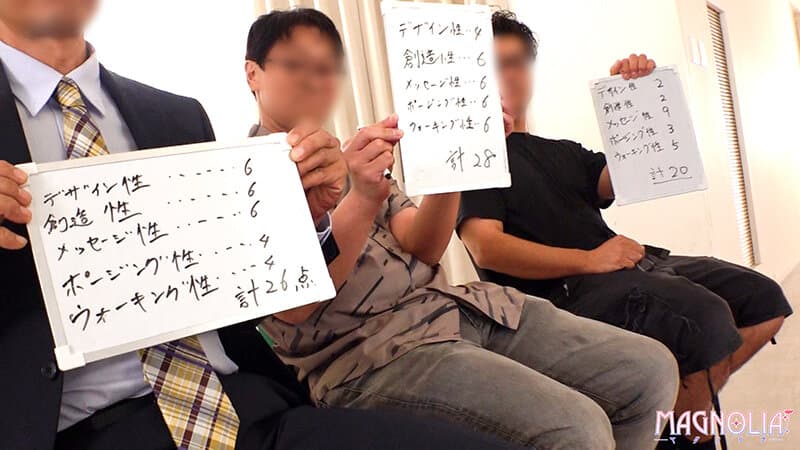 デザイン性 ‥‥‥ 6
創造性 ‥‥‥ 6
メッセージ性 ‥‥‥ 6
ポージング性 ‥‥‥ 4
ウォーキング性 ‥‥ 4
計26点
デザイン性‥4
創造性‥6
メッセージ性‥6
ポージング性‥6
ウォーキング性‥6
計28
デザイン性 2
創造性 2
メッセージ性 9
ポージング性 3
ウォーキング性 5
計20
MAGNOLIA
マグノリア